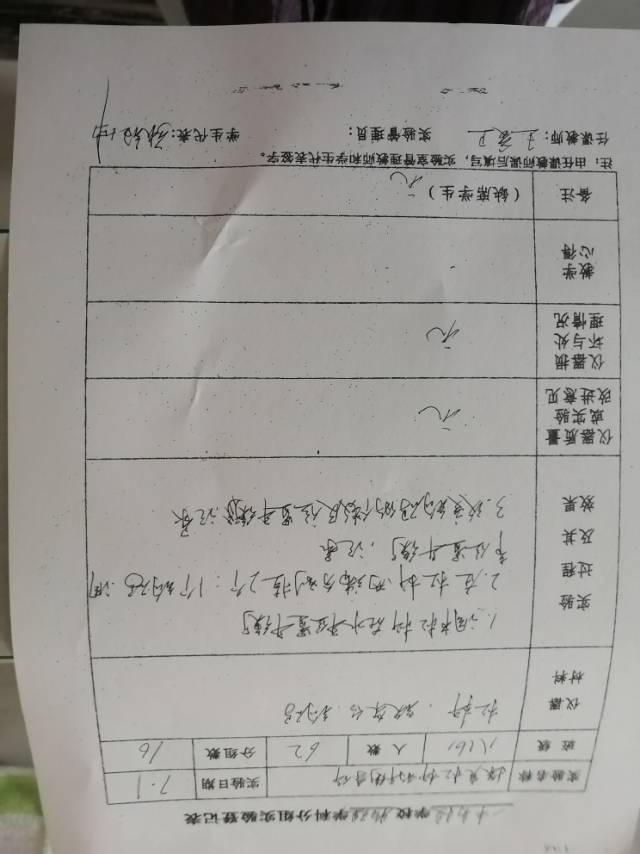 学校物理学科分组实验登记表
实验名称 探究杠杆的平衡条件 实验日期 7.1
班级 八(6) 人数 62 分组数 16
仪器材料 杠杆、铁架台、钩码
实验过程及其效果
1.调节杠杆在水平位置平衡
2.在杠杆两端分别挂2个、1个钩码，调
节位置平衡，记录
3.改变钩码的个数及位置平衡，记录
仪器质量或实验改进意见 无
仪器损坏与处理情况 无
教学心得
备注 （缺席学生） 无
注：由任课教师课后填写，实验室管理教师和学生代表签字。
任课教师： 实验管理员： 学生代表：